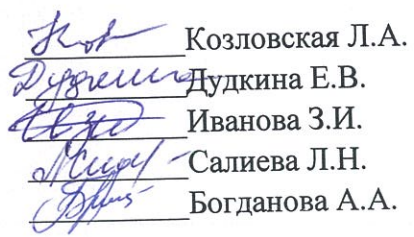 Козловская Л.А.
Дудкина Е.В.
Иванова З.И.
Салиева Л.Н.
Богданова А.А.